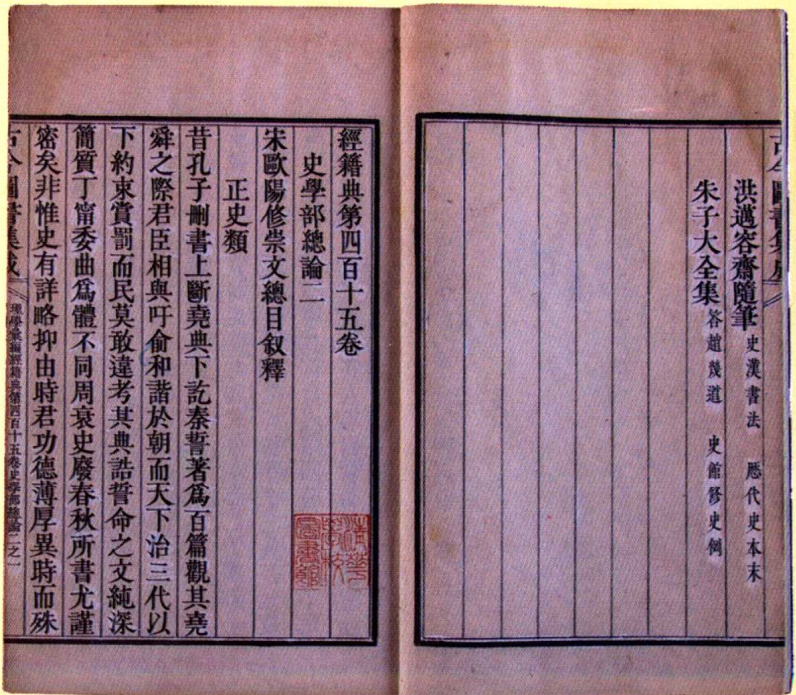 古今圖書集成
洪邁容齋隨筆 史漢書法 厯代史本末
朱子大全集 答趙幾道 史館修史例
經籍典第四百十五卷
史學部總論二
宋歐陽修崇文總目叙釋
正史類
昔孔子刪書上斷堯典下訖秦誓著爲百篇觀其堯
舜之際君臣相與吁俞和諧於朝而天下治三代以
下約束賞罰而民莫敢違考其典誥誓命之文純深
簡質丁甯委曲爲體不同周衰史廢春秋所書尤謹
密矣非惟史有詳略抑由時君功德薄厚異時而殊
古今圖書集成 理學彙編經籍典第四百十五卷史學部總論二之一
清華
學校
圖書館